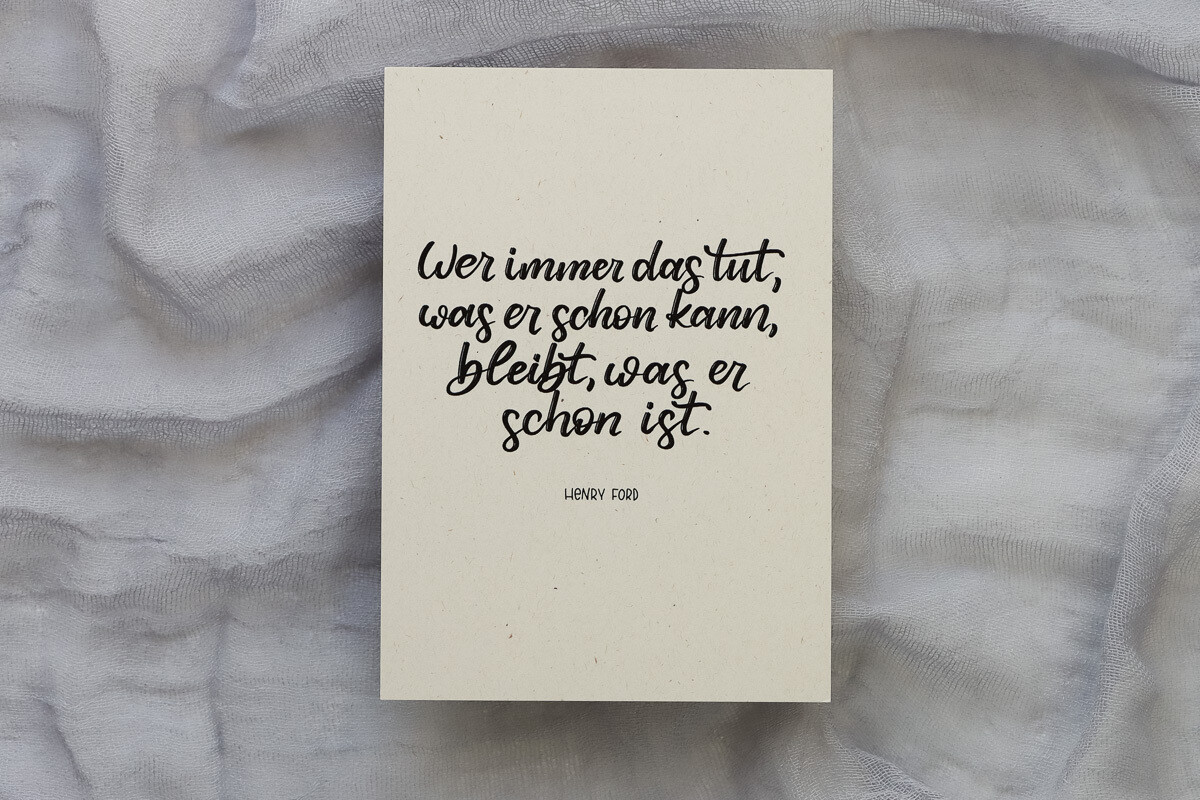 Wer immer das tut,
was er schon kann,
bleibt, was er
schon ist.
HENRY FORD